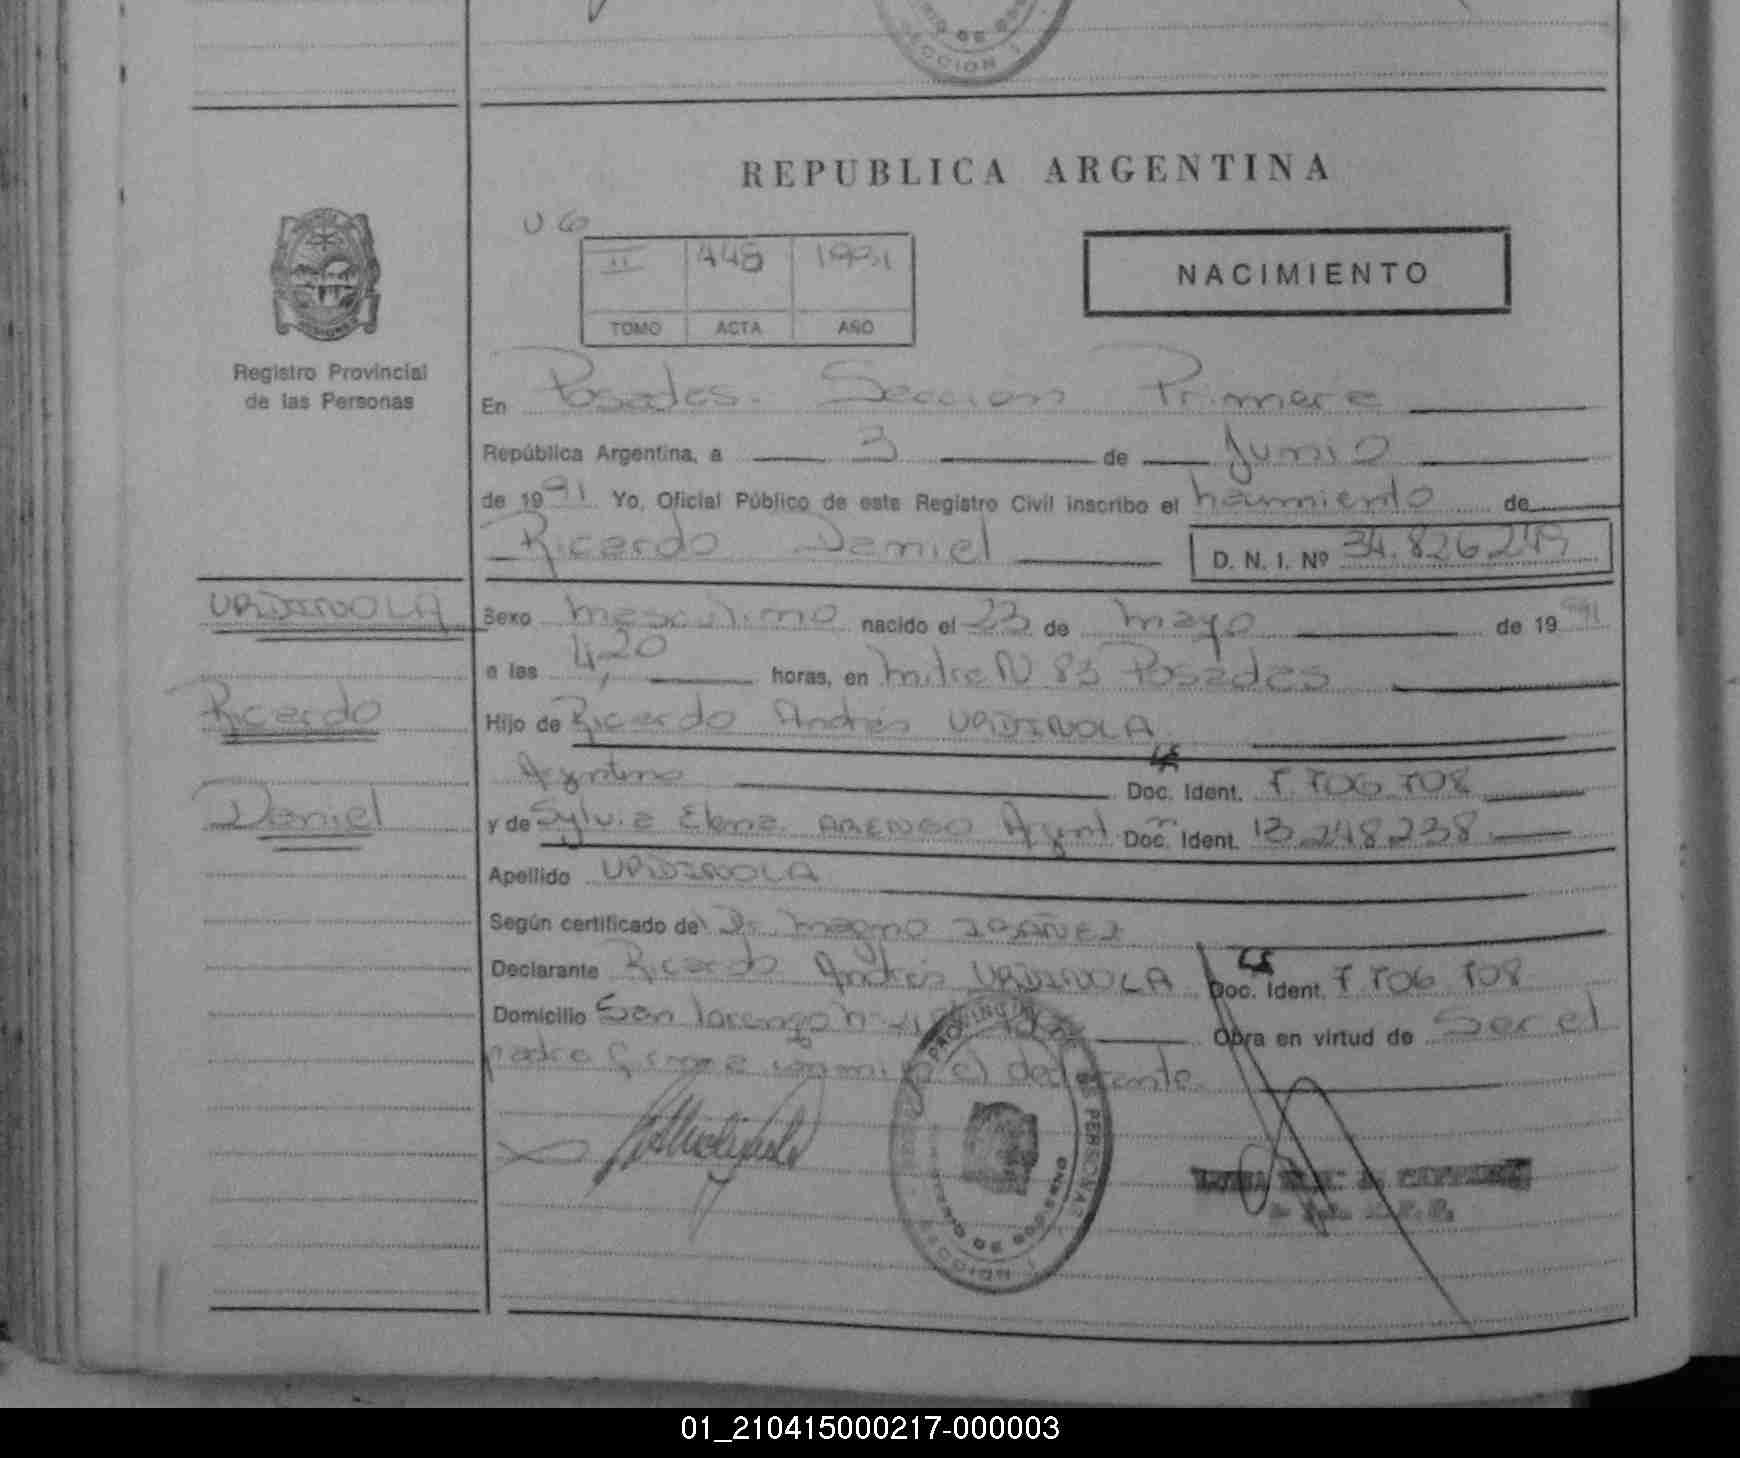 SECCION 1
REPUBLICA ARGENTINA
II 448 1991
TOMO ACTA AÑO
NACIMIENTO
Registro Provincial
de las Personas
En Posadas. Sección Primera
República Argentina, a 3 de Junio
de 1991 Yo, Oficial Público de este Registro Civil inscribo el nacimiento de
Ricardo Daniel D. N. I. Nº 34.826.249
URDINOLA
Ricardo
Daniel
Sexo masculino nacido el 23 de mayo de 1991
a las 4,20 horas, en Mitre N 83 Posadas
Hijo de Ricardo Andrés URDINOLA
Argentino Doc. Ident. 7.706.708
y de Sylvia Elena ARENGO Argent. Doc. Ident. 13.248.238
Apellido URDINOLA
Según certificado de Dr. Magno IBAÑEZ
Declarante Ricardo Andrés URDINOLA LE Doc. Ident. 7.706.708
Domicilio San Lorenzo Obra en virtud de Ser el
padre firma conmigo el declarante.
PROVINCIAL DE PERSONAS
SECCION 1
01_210415000217-000003